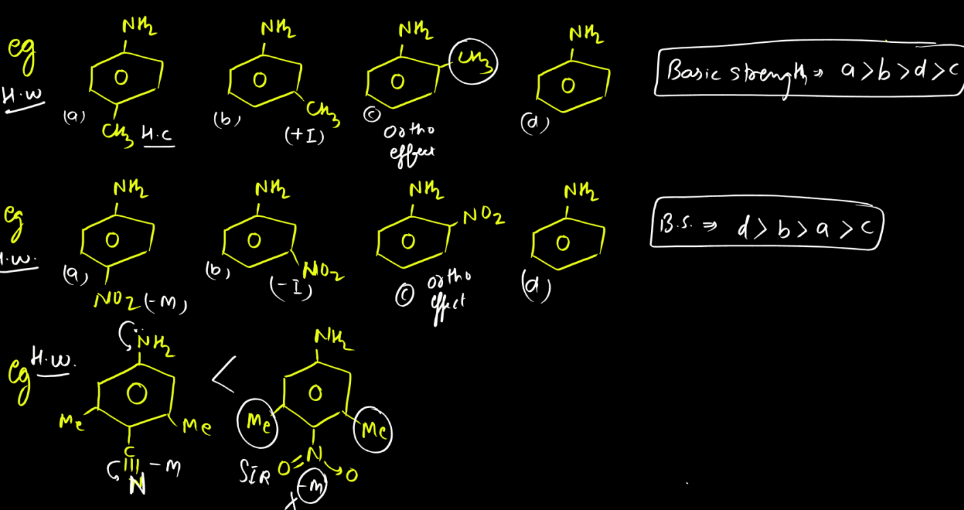 eg
H.W
NH2
(a)
CH3 H.C
NH2
(b)
CH3
(+I)
NH2
CH3
(c)
Ortho
effect
NH2
(d)
Basic strength ⇒ a > b > d > c
eg
H.W.
NH2
(a)
NO2 (-M)
NH2
(b)
NO2
(-I)
NH2
NO2
(c) Ortho
effect
NH2
(d)
B.S. ⇒ d > b > a > c
eg H.W.
NH2
Me
Me
C
N
-M
<
NH2
Me
Me
SIR
O=N→O
x -M